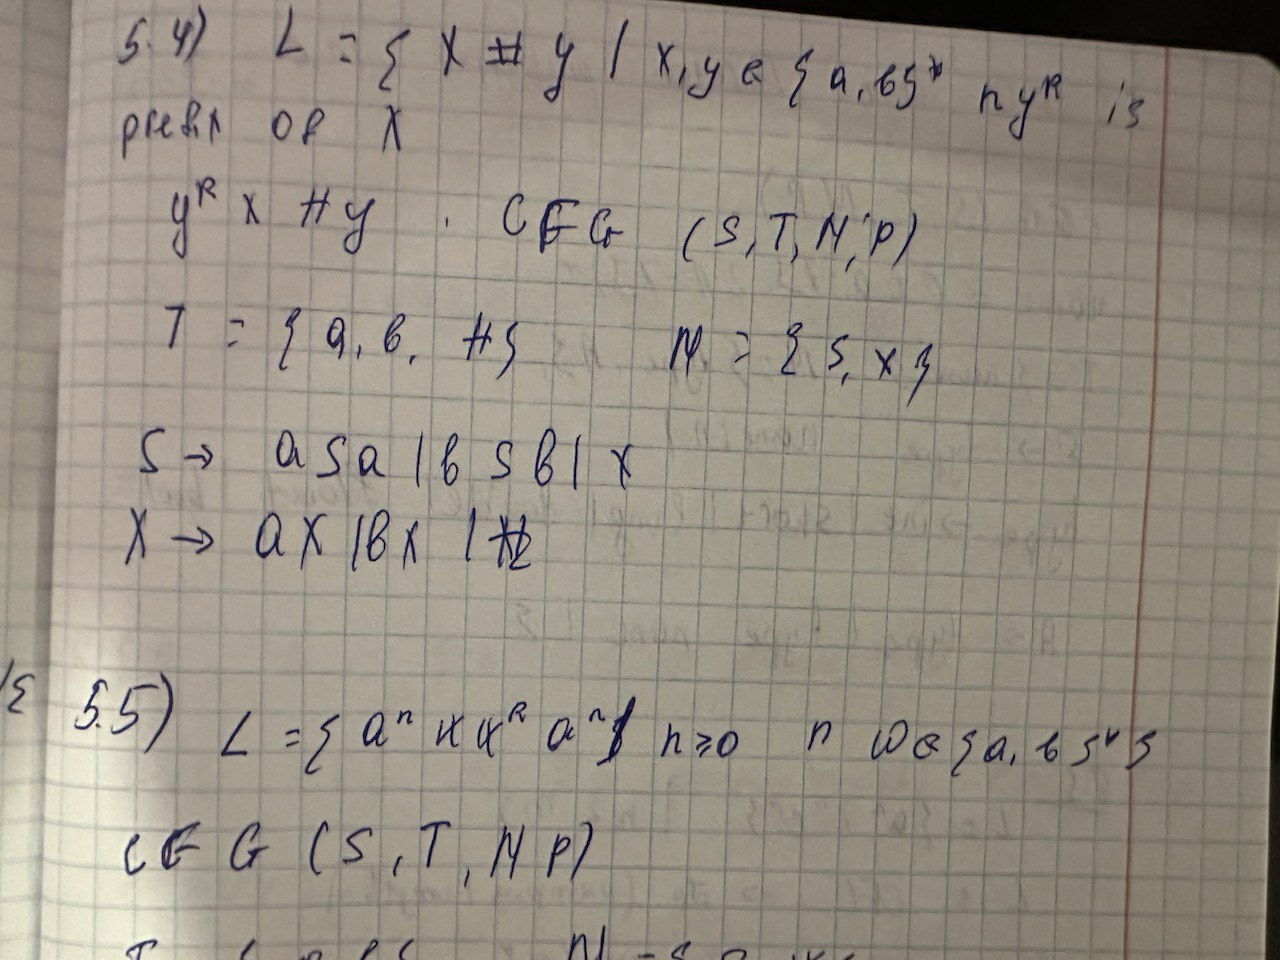 5.4) L = { X # y | x, y ∈ { a, b}* n y^R is
prefix of X
y^R x # y . CFG (S, T, N, P)
T = { a, b, # } N = { S, x }
S → a S a | b S b | x
X → a X | b X | #
5.5) L = { a^n x x^R a^n | n ≥ 0 n ω ∈ {a, b }* }
CFG (S, T, N P)